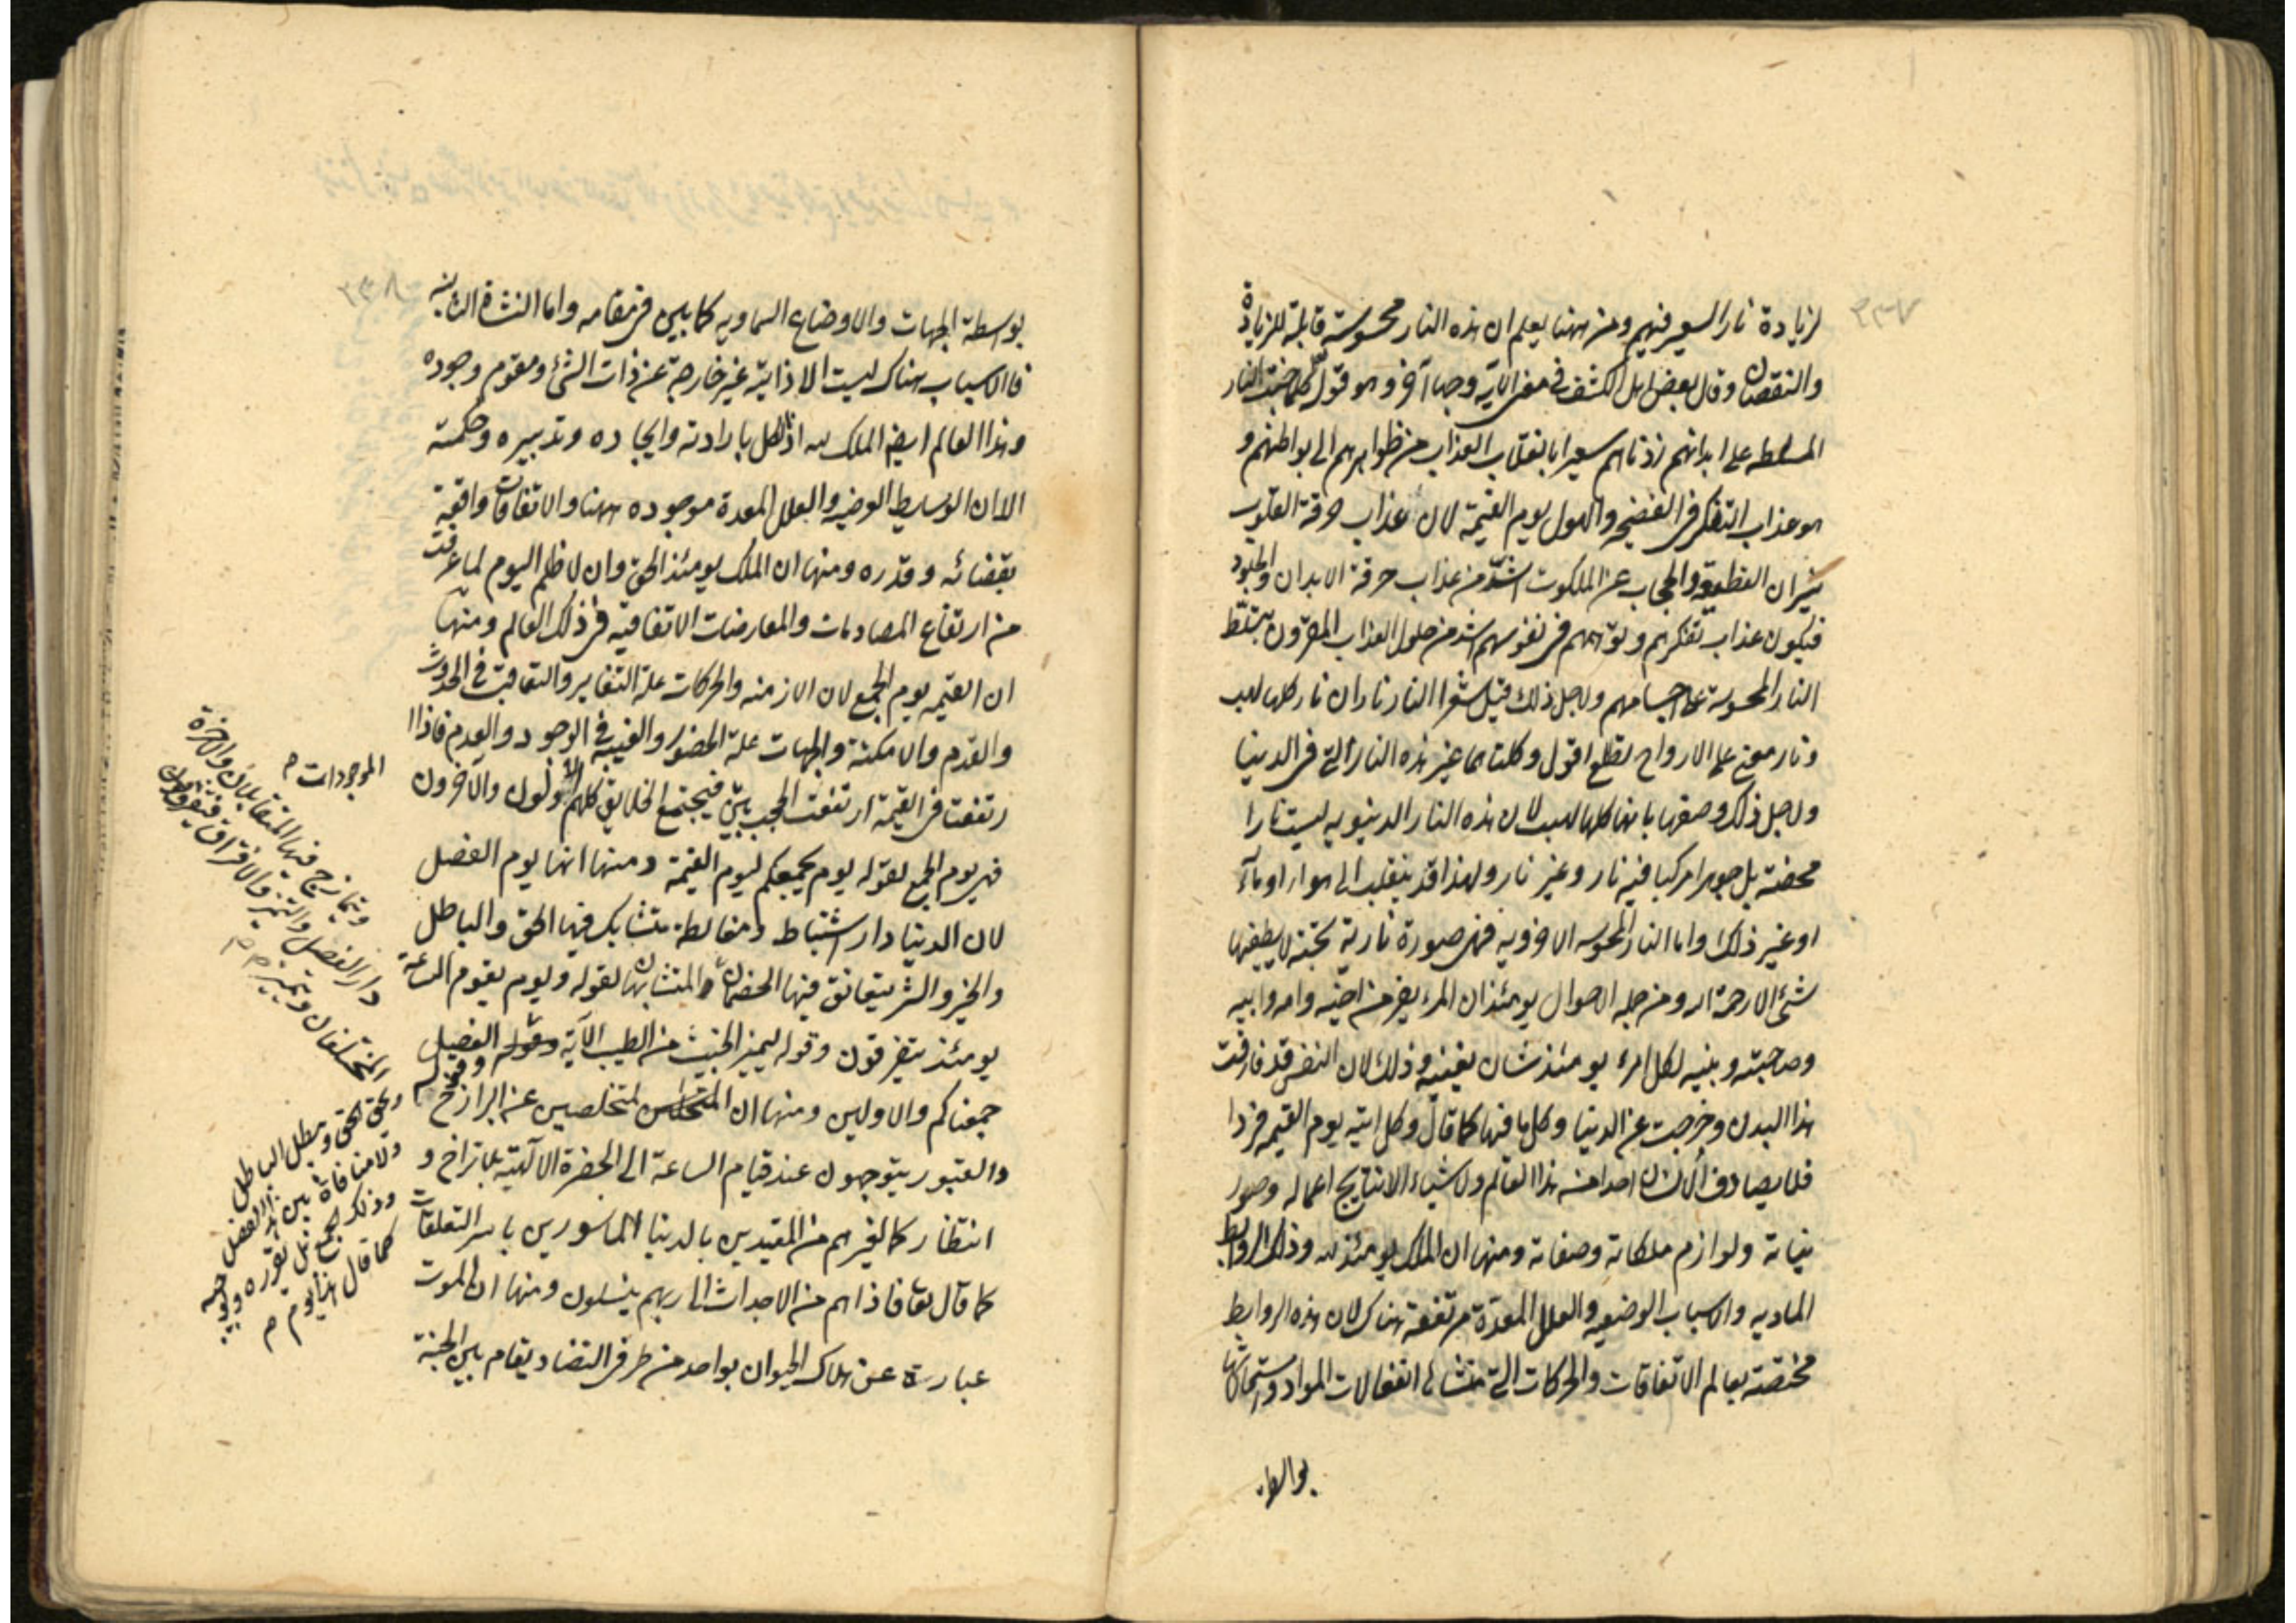 ٢٣٧
لزيادة نار السعير فيهم ومن ههنا يعلم ان هذه النار محسوسة قابلة للزيادة
والنقصان وقال بعض اهل الكشف في معنى الاية وجها آخر وهو قوله كلما خبت النار
المسلطه على ابدانهم زدناهم سعيرا بانقلاب العذاب من ظواهرهم الى بواطنهم و
هو عذاب التفكر فى الفضيحه والهول يوم القيمة لان عذاب حرقة القلوب
بنيران القطيعة والحجاب عن الملكوت اشدّ من عذاب حرقة الابدان والجلود
فيكون عذاب تفكرهم وتوهمهم فى نفوسهم اشد من حلول العذاب المقرون بتسلّط
النار المحسوسة على اجسامهم ولاجل ذلك قيل شعرا النار ناران نار كلها لهب
ونار معنى على الارواح تطلع اقول وكلتاهما غير هذه النار التى فى الدنيا
ولاجل ذلك وصفها بانها كلها لهب لان هذه النار الدنيويه ليست نارا
محضة بل جوهرا مركبا فيه نار وغير نار ولهذا قد ينقلب الى هواء او ماء
او غير ذلك واما النار المحسوسه الاخرويه فهى صورة نارية بحتة لا يطفيها
شئ الا رحمة الله ومن جمله الاحوال يومئذ ان المرء يفر من اخيه وامه وابيه
وصاحبته وبنيه لكل امرء يومئذ شان يغنيه وذلك لان النفس قد فارقت
هذا البدن وخرجت عن الدنيا وكل ما فيها كما قال وكل اتيه يوم القيمه فردا
فلا يصادف الانسان احدا من هذا العالم ولا شيئا الا نتايج اعماله وصور
نياته ولوازم ملكاته وصفاته ومنها ان الملك يومئذ لله وذلك الروابط
الماديه والاسباب الوضعيه والعلل المعدّة مرتفعة هناك لان هذه الروابط
مختصة بعالم الاتفاقيات والحركات التى منشا انفعالات المواد واستحالاتها
بواسطة
٢٣٨
بوسطة الجهات والاوضاع السماويه كما يبين فى مقامه واما النشاة الثانيه
فالاسباب هناك ليست الا ذاتية غير خارجة عن ذات الشئ ومقوم وجوده
وهذا العالم ايضا الملك لله اذ الكل بارادته وايجاده وتدبيره وحكمته
الا ان الوسايط الوضعيه والعلل المعدة موجوده ههنا والاتفاقات واقعة
بقضائه وقدره ومنها ان الملك يومئذ الحق وان لا ظلم اليوم لما عرفت
من ارتفاع المصادمات والمعارضات الاتفاقيه فى ذلك العالم ومنها
ان القيمه يوم الجمع لان الازمنه والحركات علة التغاير والتعاقب فى الحدوث
والقدم والامكنة والجهات علة الحضور والغيبة فى الوجود والعدم فاذا ا
رتفعت فى القيمة ارتفعت الحجب بين فيجتمع الخلايق كلهم الاولون والآخرون
فهى يوم الجمع لقوله يوم يجمعكم ليوم القيمة ومنها انها يوم الفصل
لان الدنيا دار اشتباط ومغالطة يتشابك فيها الحق والباطل
والخير والشر يتعانق فيها الخصمان والمتشابهان لقوله ويوم يقوم الساعة
يومئذ يتفرقون وقوله ليميز الخبيث من الطيب الآية وقوله الفصيل
جمعناكم والاولين ومنها ان المتخلصين عن البرازخ
والقبور يتوجهون عند قيام الساعة الى الحضرة الالهية بلا تراخ و
انتظار كما لغيرهم من المقيدين بالدنيا الماسورين باسر التعلقات
كما قال تعا فاذا هم من الاجداث الى ربهم ينسلون ومنها ان الموت
عبارة عن هلاك الحيوان بواحد من طرفى التضاد يقام بين الجنة
الموجودات م
ويتمازج فيها المتقابلان والاخرة
دار الفصل والتميز والافتراق فيتفرق
المختلفان ويتميز م
ويحق الحق ويبطل الباطل
ولا منافاة بين هذا الفصل
وذلك الجمع بل يقرره
كما قال هذا يوم م